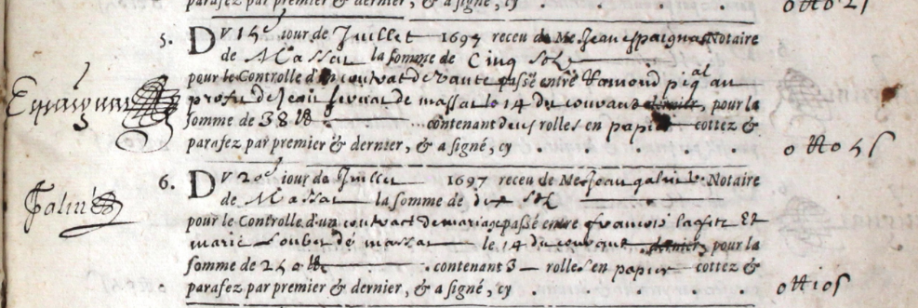 parafez par premier & dernier, & a signé, cy . . . otto 2 s
5. DV 15e iour de Juillet 1697 receu de Me Jean Espaignac Notaire
de Massat la somme de Cinq sols
pour le Controlle d'un contrat de vante passé entre Ramond piqal au
profit de Jean de massat le 14 du courant dernier, pour la
somme de 38 ll contenant deus rolles en papier cottez &
parafez par premier & dernier, & a signé, cy . . . otto 5 s
6. DV 20e iour de Juillet 1697 receu de Me Jean galin Notaire
de Massat la somme de dix sols
pour le Controlle d'un contrat de mariage passé entre francois lafite Et
marie soubie de massat le 14 du courant dernier, pour la
somme de 250 ll contenant 3 rolles en papier cottez &
parafez par premier & dernier, & a signé, cy . . . otto 10 s